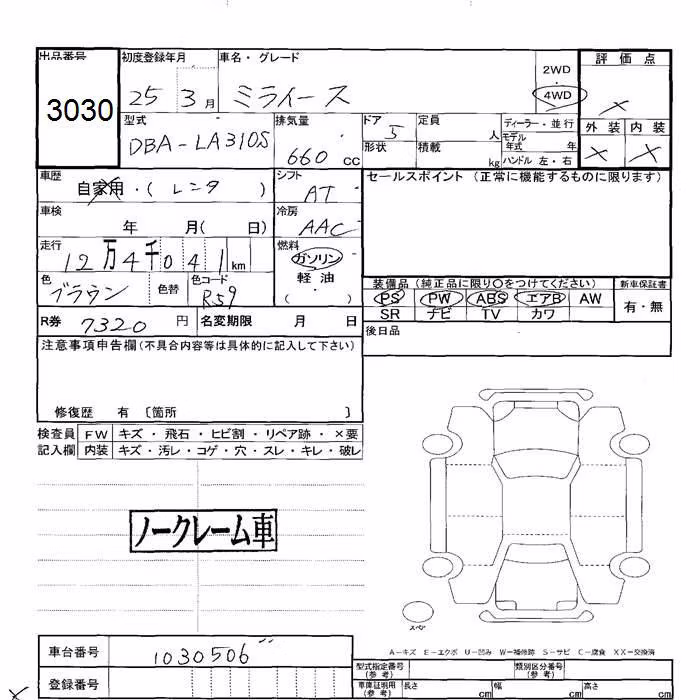 出品番号 初度登録年月 車名・グレード 評価点
3030 25 3月 ミライース 2WD 4WD ×
型式 排気量 ドア 定員 ディーラー・並行 外装 内装
DBA-LA310S 660cc 5 人 モデル年式 年 × ×
形状 積載 kg ハンドル 左・右
車歴 自家用・(レンタ) シフト AT セールスポイント(正常に機能するものに限ります)
車検 年 月( 日) 冷房 AAC
走行 12万4千041km 燃料 ガソリン
軽油・( )
色 ブラウン 色替 色コード R59
装備品(純正品に限り○をつけてください) 新車保証書
PS PW ABS エアB AW 有・無
SR ナビ TV カワ
R券 7320円 名変期限 月 日 後日品
注意事項申告欄(不具合内容等は具体的に記入して下さい)
修復歴 有 〔箇所 〕
検査員 FW キズ・飛石・ヒビ割・リペア跡・×要
記入欄 内装 キズ・汚レ・コゲ・穴・スレ・キレ・破レ
ノークレーム車
スペア
A-キズ E-エクボ U-凹み W-補修跡 S-サビ C-腐食 XX-交換済
車台番号 1030506 型式指定番号(参考) 類別区分番号(参考)
登録番号 車庫証明用(参考) 長さ cm 幅 cm 高さ cm
×